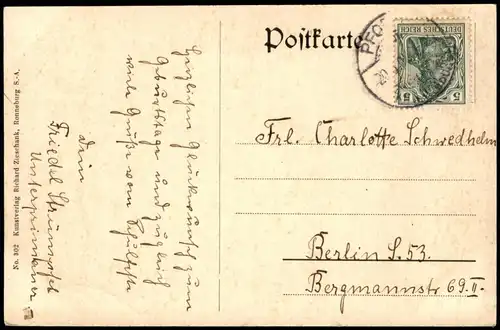 Postkarte
DEUTSCHES REICH
5 5
Herzlichen Glückwunsch zum
Geburtstage und zugleich
viele Grüße vom Schulfeste
Dein
Friedel
Unterprimaner.
Frl. Charlotte Schwedhelm
Berlin S. 53.
Bergmannstr 69 II.
No. 302 Kunstverlag Richard Zieschank, Ronneburg S.-A.